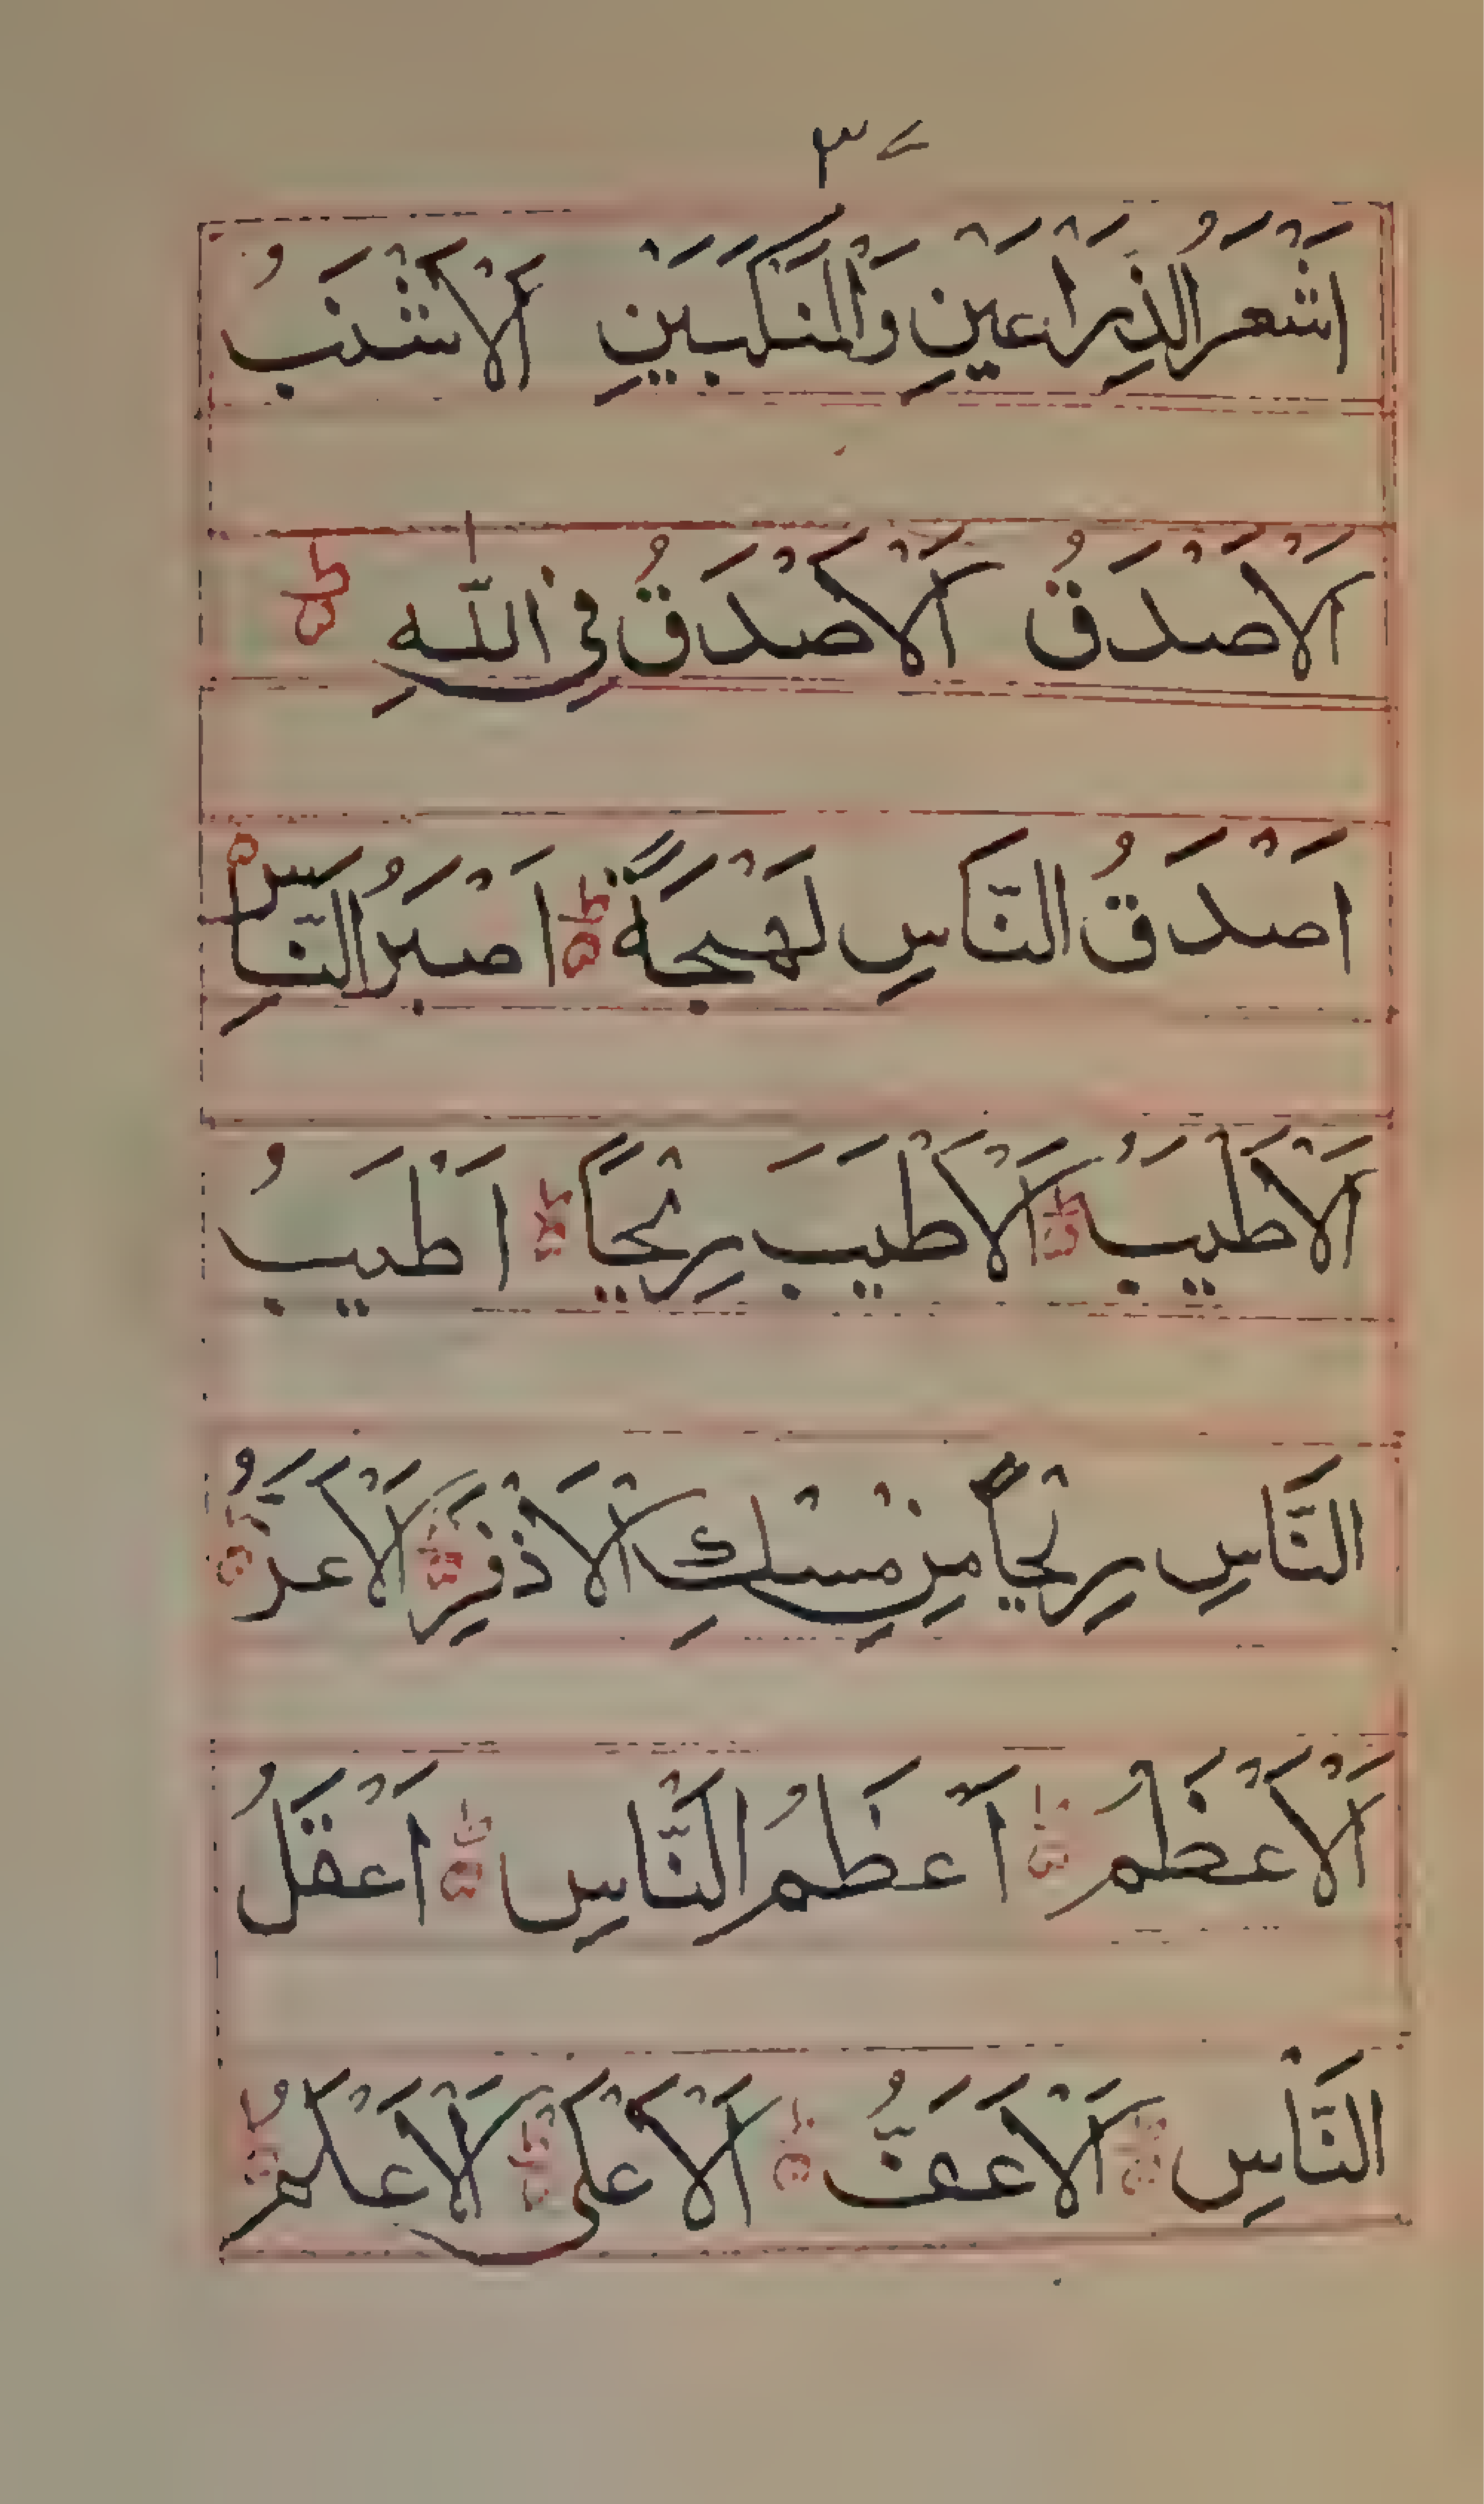 ٣
اَشْعَرُ الذِّرَاعَيْنِ وَالْمَنْكَبَيْنِ اَلْاَشْنَبُ
اَلْاَصْدَقُ اَلْاَصْدَقُ فِي اللّٰهِ
اَصْدَقُ النَّاسِ لَهْجَةً اَصْبَرُ النَّاسِ
اَلْاَطْيَبُ اَلْاَطْيَبَ رِيْحًا اَطْيَبُ
النَّاسِ رِيْحًا مِنْ مِسْكِ الْاَذْفَرِ اَلْاَعَزُّ
اَلْاَعْظَمُ اَعْظَمُ النَّاسِ اَعْقَلُ
النَّاسِ اَلْاَعَفُّ اَلْاَعْلٰى اَلْاَعْلَمُ